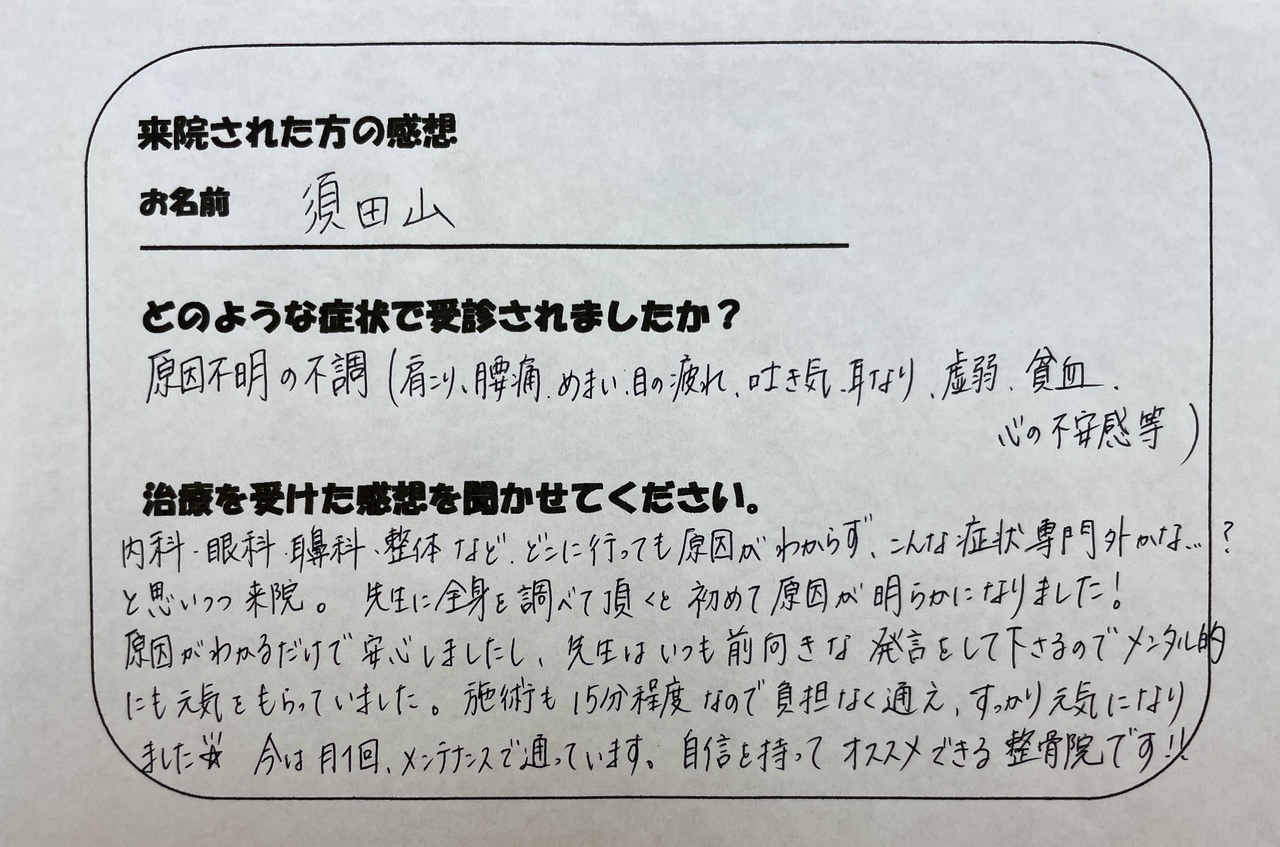 来院された方の感想
お名前 須田山
どのような症状で受診されましたか？
原因不明の不調(肩こり、腰痛、めまい、目の疲れ、吐き気、耳なり、虚弱、貧血、
心の不安感等)
治療を受けた感想を聞かせてください。
内科・眼科・耳鼻科・整体など、どこに行っても原因がわからず、こんな症状専門外かな…？
と思いつつ来院。 先生に全身を調べて頂くと初めて原因が明らかになりました！
原因がわかるだけで安心しましたし、先生はいつも前向きな発言をして下さるのでメンタル的
にも元気をもらっていました。施術も15分程度なので負担なく通え、すっかり元気になり
ました☆ 今は月1回、メンテナンスで通っています。自信を持ってオススメできる整骨院です!!